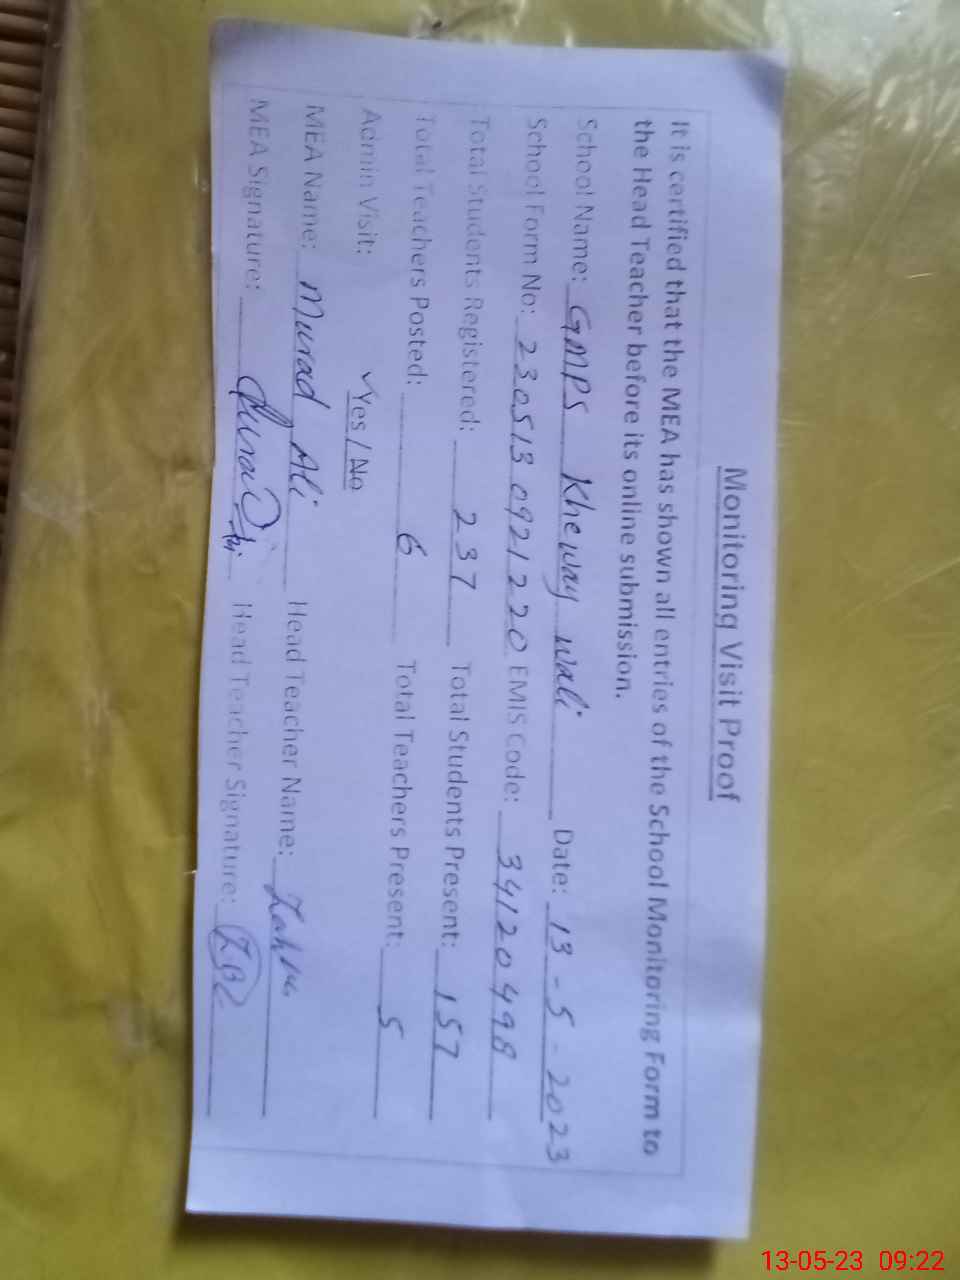 Monitoring Visit Proof
It is certified that the MEA has shown all entries of the School Monitoring Form to
the Head Teacher before its online submission.
School Name: GMPS Kheway wali Date: 13-5-2023
School Form No: 230513 0921220 EMIS Code: 34120498
Total Students Registered: 237 Total Students Present: 157
Total Teachers Posted: 6 Total Teachers Present: 5
Admin Visit: ✓Yes / No
MEA Name: Murad Ali Head Teacher Name:
MEA Signature: Head Teacher Signature:
13-05-23 09:22